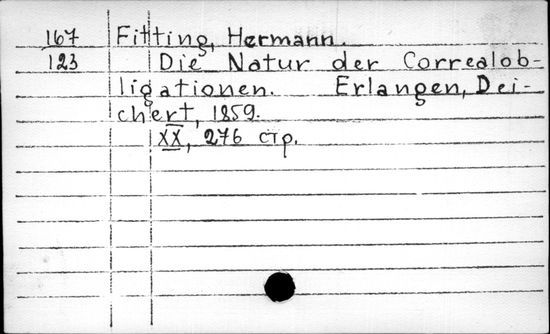 167 Fitting, Hermann.
123 Die Natur der Correalob-
ligationen. Erlangen, Dei-
chert, 1859.
XX, 276 стр.